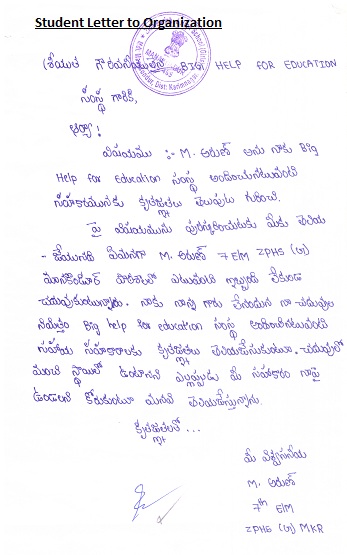 Student Letter to Organization
శ్రీయుత గౌరవనీయులైన BIG HELP FOR EDUCATION
సంస్థ గారికి,
ఆర్యా!
విషయము :- M. అరుణ్ అను నాకు Big
Help for Education సంస్థ అందించినటువంటి
సహకారమునకు కృతజ్ఞతలు తెలుపుట గురించి.
పై విషయమును పురస్కరించుకుని మీకు తెలియ
- జేయునది ఏమనగా M. అరుణ్ 7 E/M ZPHS (G)
మానకొండూర్ పాఠశాలలో ఎటువంటి ఇబ్బంది లేకుండ
చదువుకుంటున్నాను. నాకు నాన్న గారు లేనందున నా చదువుల
నిమిత్తం Big help for education సంస్థ అందించినటువంటి
సహాయ సహకారాలకు కృతజ్ఞతలు తెలియజేసుకుంటూ. చదువులో
మంచి స్థాయిలో ఉంటానని ఎల్లప్పుడు మీ సహకారం నాపై
ఉండాలని కోరుకుంటూ మనవి తెలియజేస్తున్నాను.
కృతజ్ఞతలతో...
మీ విశ్వసనీయ
M. అరుణ్
7th E/M
ZPHS (G) MKR